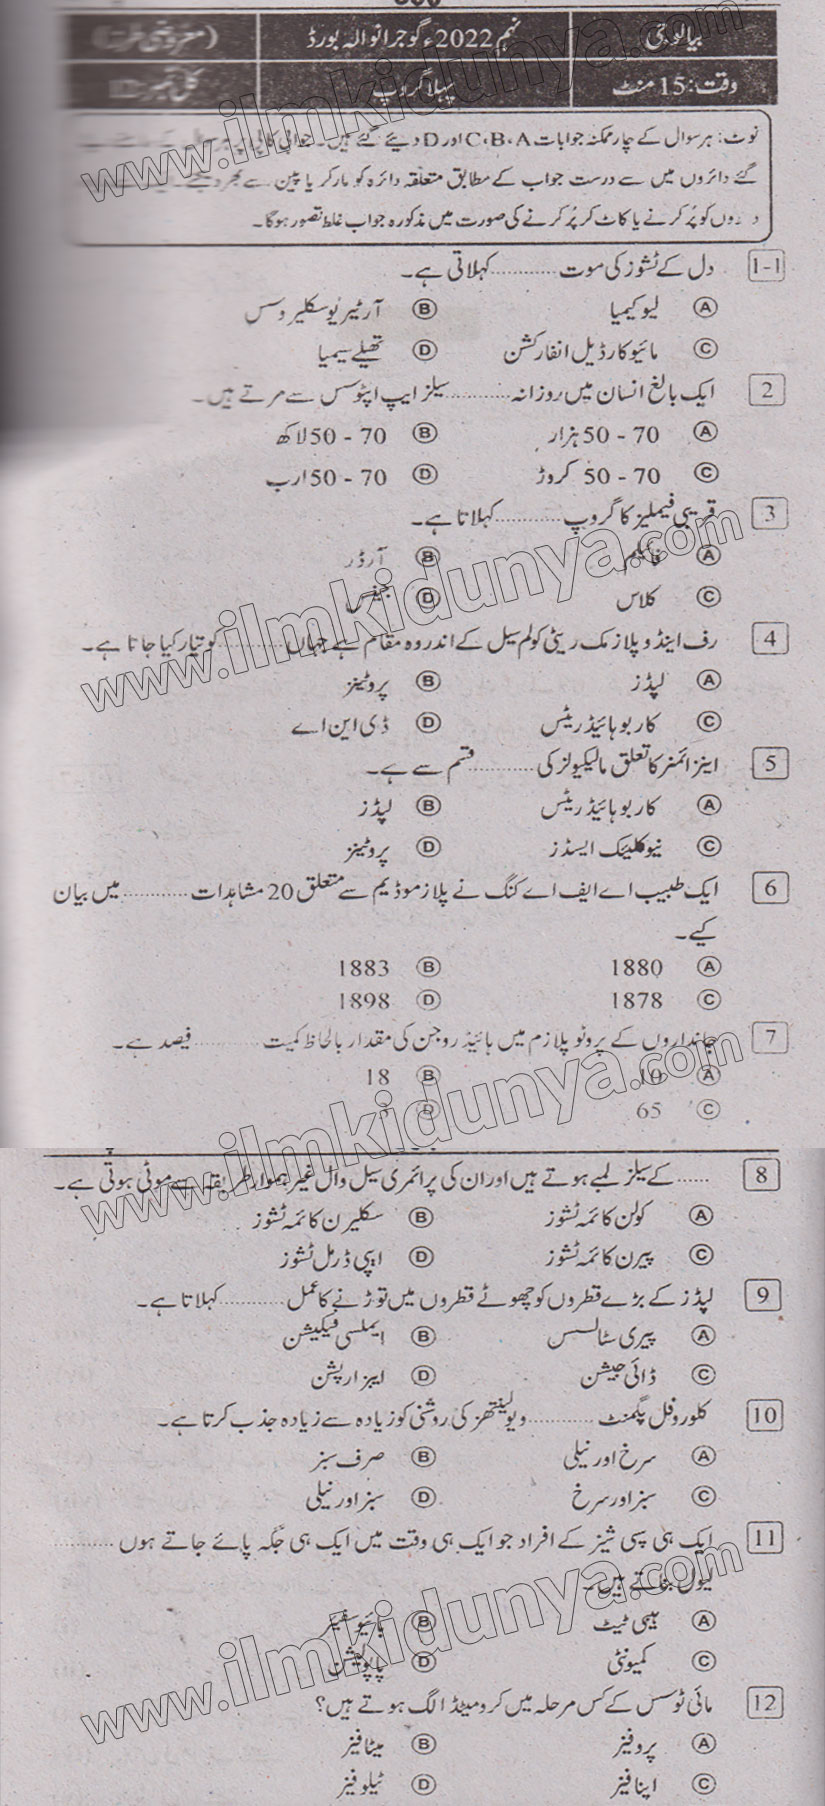 بیالوجی نہم 2022ء گوجرانوالہ بورڈ (معروضی طرز)
وقت: 15 منٹ پہلا گروپ کل نمبر:
نوٹ: ہر سوال کے چار ممکنہ جوابات C،B،A اور D دیئے گئے ہیں۔ جوابی کاپی پر ہر سوال کے سامنے دیئے
گئے دائروں میں سے درست جواب کے مطابق متعلقہ دائرہ کو مارکر یا پین سے بھر دیجئے۔
دائروں کو پُر کرنے یا کاٹ کر پُر کرنے کی صورت میں مذکورہ جواب غلط تصور ہوگا۔
1-1 دل کے ٹشوز کی موت ........... کہلاتی ہے۔
A لیوکیمیا B آرٹیریوسکلیروسس
C مائیوکارڈیل انفارکشن D تھیلے سیمیا
2 ایک بالغ انسان میں روزانہ ........... سیلز ایپ اپٹوسس سے مرتے ہیں۔
A 50 - 70 ہزار B 50 - 70 لاکھ
C 50 - 70 کروڑ D 50 - 70 ارب
3 قریبی فیملیز کا گروپ ........... کہلاتا ہے۔
A فائیلم B آرڈر
C کلاس D جینس
4 رف اینڈوپلازمک ریٹی کولم سیل کے اندر وہ مقام ہے جہاں ........... کو تیار کیا جاتا ہے۔
A لپڈز B پروٹینز
C کاربوہائیڈریٹس D ڈی این اے
5 اینزائمز کا تعلق مالیکیولز کی ........... قسم سے ہے۔
A کاربوہائیڈریٹس B لپڈز
C نیوکلیئک ایسڈز D پروٹینز
6 ایک طبیب اے ایف اے کنگ نے پلازموڈیم سے متعلق 20 مشاہدات ........... میں بیان
کیے۔
A 1880 B 1883
C 1878 D 1898
7 جانداروں کے پروٹوپلازم میں ہائیڈروجن کی مقدار بالحاظ کمیت ........... فیصد ہے۔
A 10 B 18
C 65 D 3
8 ...... کے سیلز لمبے ہوتے ہیں اور ان کی پرائمری سیل وال غیر ہموار طریقہ سے موٹی ہوتی ہے۔
A کولن کائمہ ٹشوز B سکلیرن کائمہ ٹشوز
C پیرن کائمہ ٹشوز D ایپی ڈرمل ٹشوز
9 لپڈز کے بڑے قطروں کو چھوٹے قطروں میں توڑنے کا عمل ........... کہلاتا ہے۔
A پیری سٹالسس B ایملسی فیکیشن
C ڈائی جیشن D ایبزارپشن
10 کلوروفل پگمنٹ ........... ویولینتھز کی روشنی کو زیادہ سے زیادہ جذب کرتا ہے۔
A سرخ اور نیلی B صرف سبز
C سبز اور سرخ D سبز اور نیلی
11 ایک ہی سپی شیز کے افراد جو ایک ہی وقت میں ایک ہی جگہ پائے جاتے ہوں ...........
لیول بناتے ہیں۔
A ہیبی ٹیٹ B بائیوسفیئر
C کمیونٹی D پاپولیشن
12 مائی ٹوسس کے کس مرحلہ میں کرومیٹڈ الگ ہوتے ہیں؟
A پروفیز B میٹافیز
C اینافیز D ٹیلوفیز
www.ilmkidunya.com
www.ilmkidunya.com
www.ilmkidunya.com
www.ilmkidunya.com